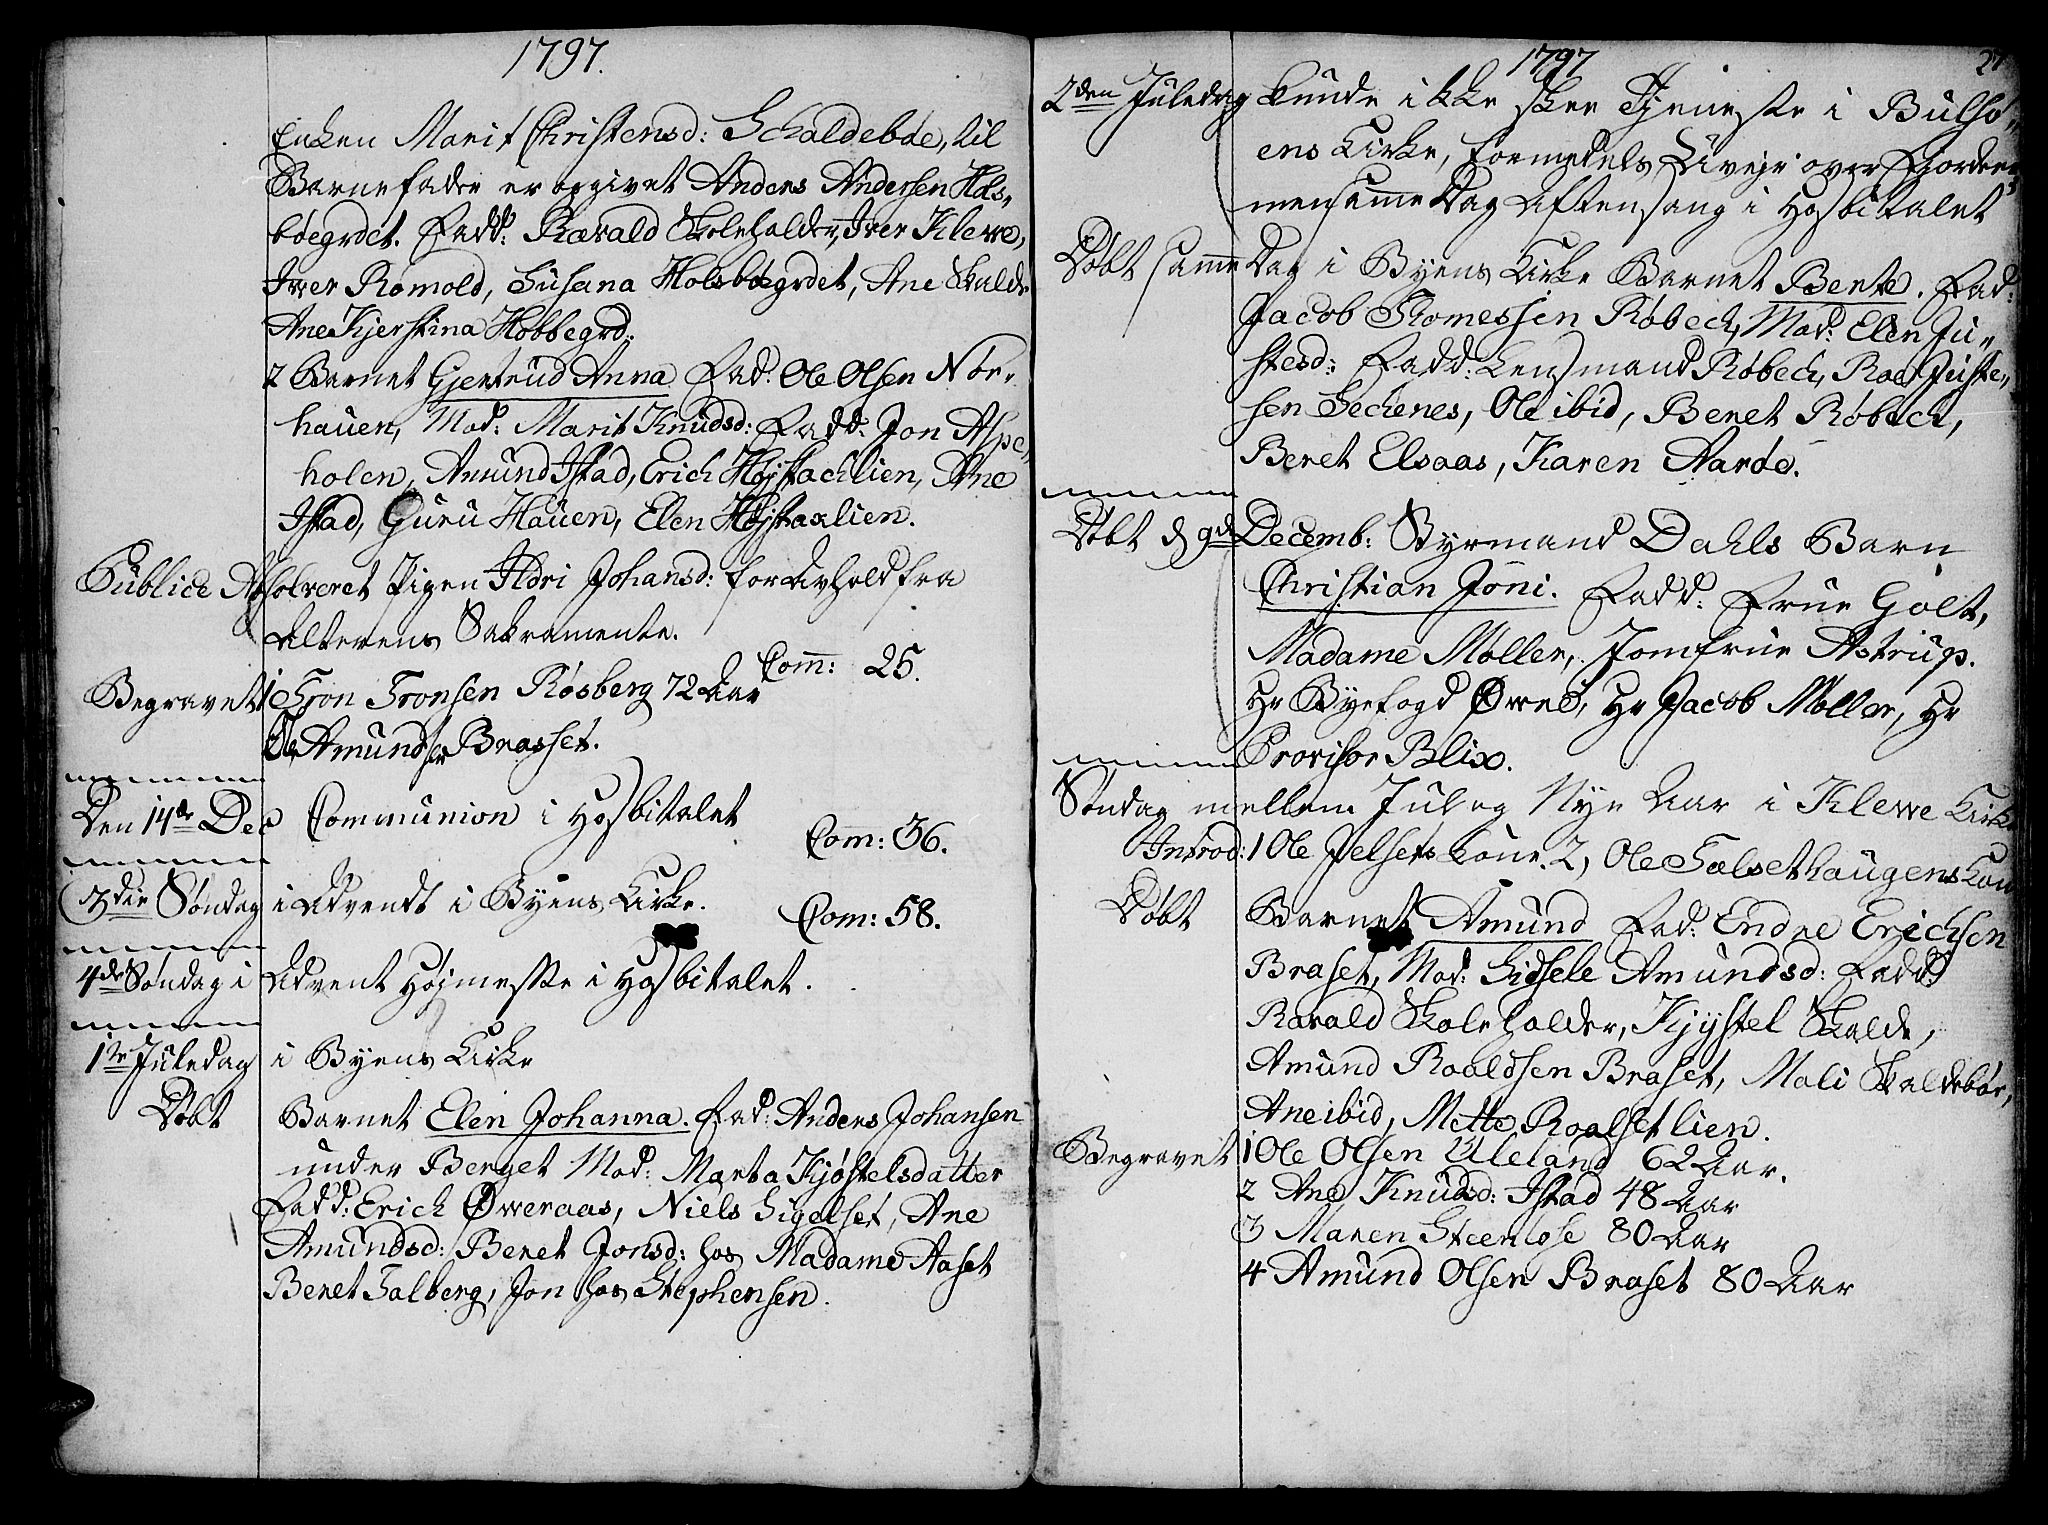 1797.
Enken Marit Christensd: Schaldebøe, til
Barnefader er opgivet Anders Andersen Hols,,
bøegrdet. Fadd: Rarald Skoleholder, Iver Klewe,
Iver Romold, Susana Holsbøegrdet, Ane Skalde
Ane Kjerstina Hobbegrd.
2 Barnet Gjertrud Anna Fad: Ole Olsen Nør-
hauen, Mod: Marit Knudsd: Fadd: Jon Aspe,,
holen, Amund Istad, Erich Højstachlien, Ane
Istad, Guru Hauen, Elen Højstaxlien.
Publice Absolveret Pigen Ildri Johansd: for Avhold fra
Alterens Sakramente.
Com̄: 25.
Begravet 1 Tron Tronsen Røsberg 72 Aar
Ole Amundsen Brasset.
Den 14de Dec Communion i Hosbitalet
Com: 36.
3die Søndag i Advent i Byens Kirke.
Com: 58.
4de Søndag i Advent Højmesse i Hosbitalet.
1te Juledag i Byens Kirke
Døbt Barnet Elen Johanna. Fad: Anders Johansen
under Berget Mod: Marta Kjøstelsdatter
Fadd: Erich Øweraas, Niels Sigelset, Ane
Amundsd: Beret Jonsd: hos Madame Aaset
Beret Solberg, Jon hos Stephensen.
1797
27
2den Juledag kunde ikke skee Tjeneste i Bulsø,,
ens Kirke, formedels Uvejr over Fjorden
men samme Dag Aftensang i Hosbitalet
Døbt samme Dag i Byens Kirke Barnet Bente. Fad:
Jacob Tromessen Røbech, Mod: Elen Ju,,
stesd: Fadd: Lensmand Røbech, Roe Juste,,
sen Sechenes, Ole ibid, Beret Røbech,
Beret Elsaas, Karen Aarøe.
Døbt d 9de Decemb: Styrmand Dahls Barn
Christian Joni. Fadd: Frue Golt,
Madame Møller, Jomfrue Astrup.
Hr Byefogd Øwre, Hr Jacob Møller, Hr
Provisor Blix.
Søndag mellem Jul og Nye Aar i Klewe Kirke
Introd: 1 Ole Jelsets kone. 2, Ole Talsethaugens Kone
Døbt Barnet Amund Fad: Endre Erichsen
Braset, Mod: Sidsele Amundsd: Fadd:
Rarald Skoleholder, Kjystel Skalde,
Amund Roaldsen Braset, Mali Skaldebør,
Ane ibid, Mette Roalsetlien.
Begravet 1 Ole Olsen Uleland 62 Aar.
2 Ane Knudsd: Istad 48 Aar
3 Maren Steenløse 80 Aar
4 Amund Olsen Braset 80 Aar